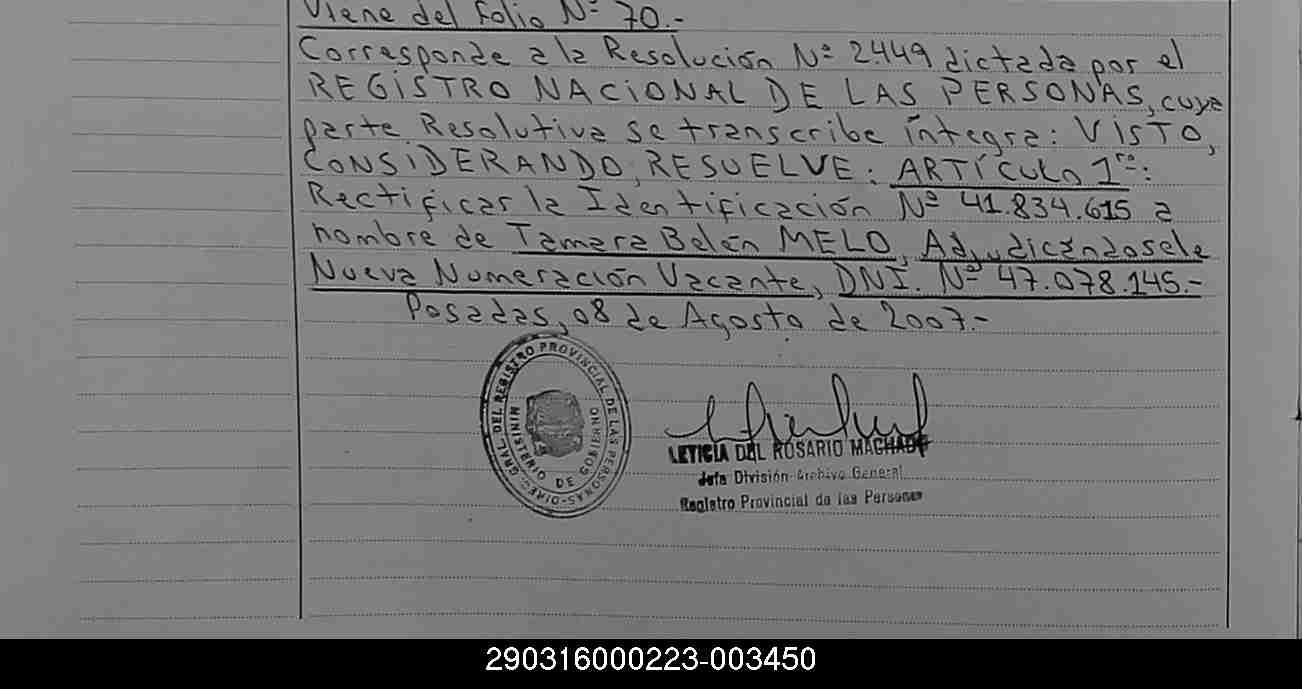 Viene del Folio Nº 70.-
Corresponde a la Resolución Nº 2.449 dictada por el
REGISTRO NACIONAL DE LAS PERSONAS, cuya
parte Resolutiva se transcribe íntegra: VISTO,
CONSIDERANDO, RESUELVE: ARTÍCULO 1ro:
Rectificar la Identificación Nº 41.834.615 a
nombre de Tamara Belén MELO, Adjudicándosele
Nueva Numeración Vacante, DNI. Nº 47.078.145.-
Posadas, 08 de Agosto de 2007.-
DIREC. GRAL DEL REGISTRO PROVINCIAL DE LAS PERSONAS
MINISTERIO DE GOBIERNO
LETICIA DEL ROSARIO MACHADO
Jefa División Archivo General
Registro Provincial de las Personas
290316000223-003450